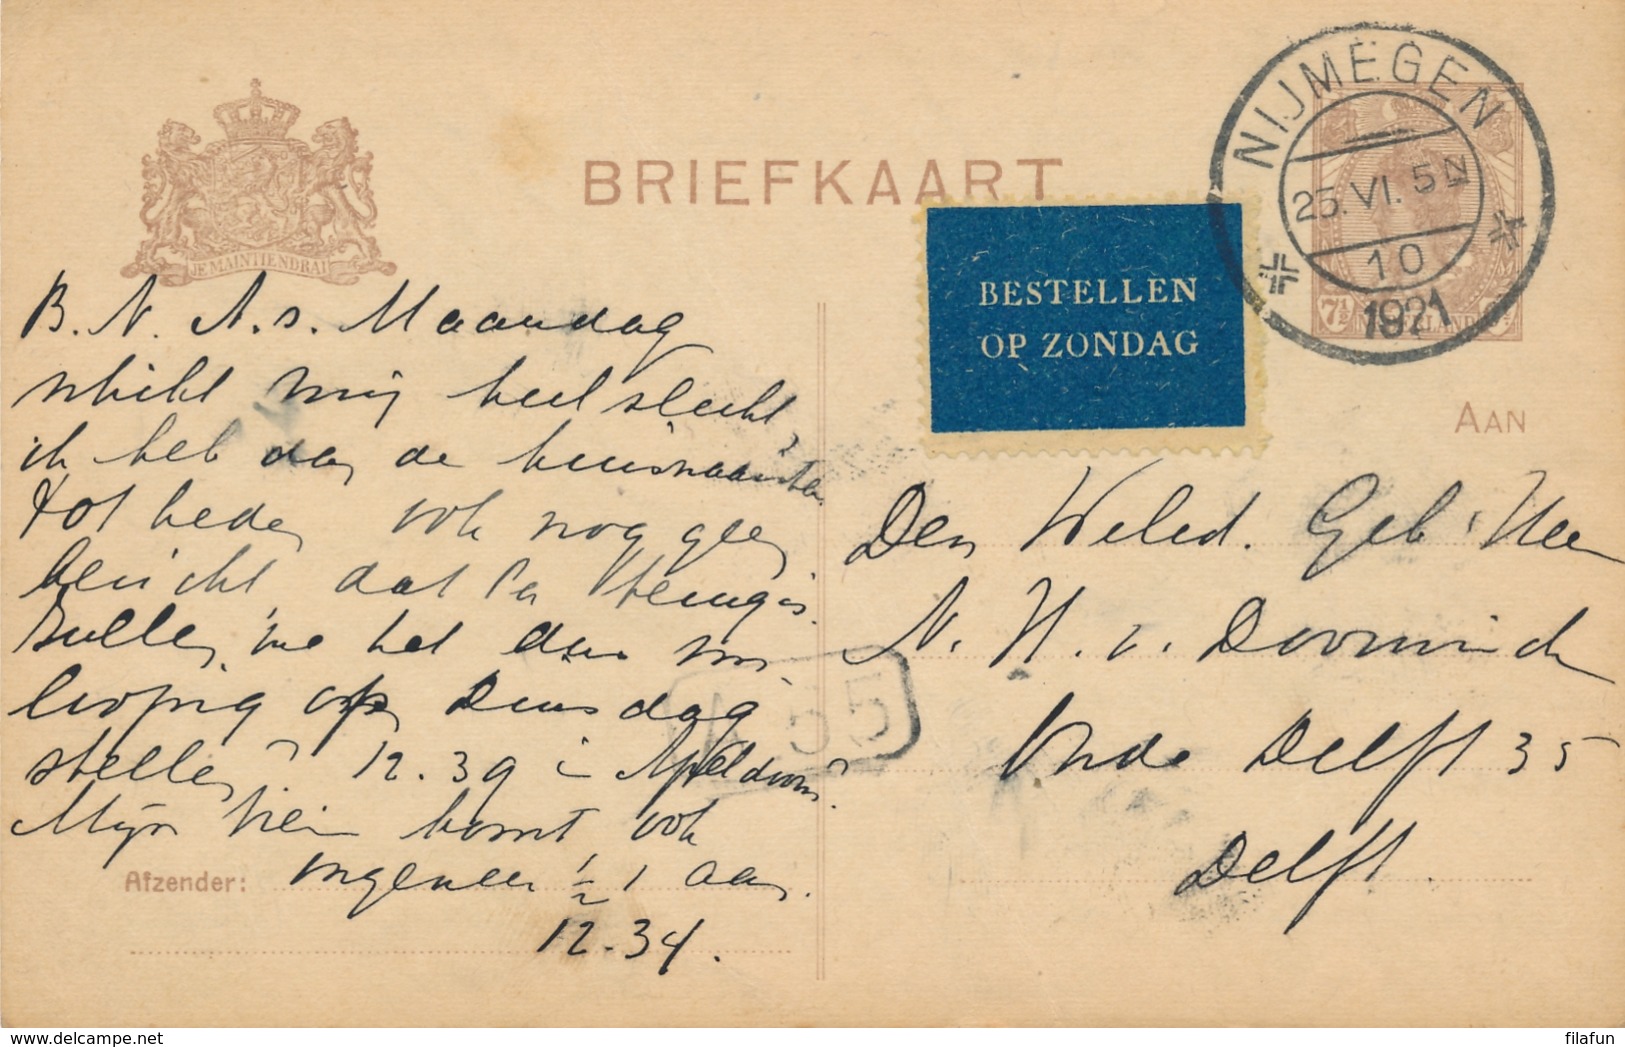 BRIEFKAART
NIJMEGEN
25.VI. 5N
10
1921
7½
JE MAINTIENDRAI
BESTELLEN
OP ZONDAG
AAN
B. N. A.s. Maandag
schikt mij heel slecht,
ik heb van de
tot heden ook nog geen
bericht dat
zullen we het dan
op Dinsdag
stellen? 12.39 in Apeldoorn?
Mijn trein komt ook
Afzender: ongeveer ½ 1 aan.
12.34.
Den Weled. Geb. Heer
N. H. v. Doorninck
Oude Delft 35
Delft.
55
delcampe.net
filafun